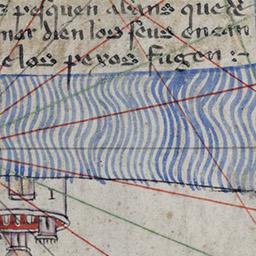 s pesquen abans que le
mar dien los seus encan
e los pexos fugen :~